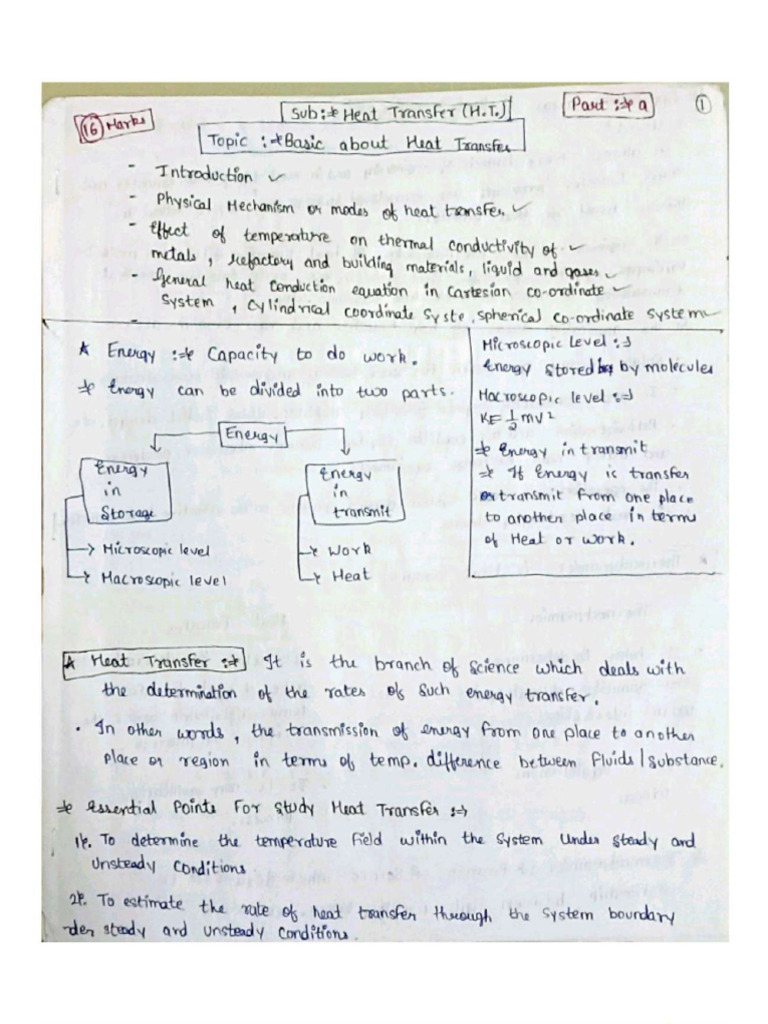 16 Marks
Sub:⇒ Heat Transfer (H.T.)
Part :⇒ a
1
Topic :⇒ Basic about Heat Transfer
- Introduction ✓
- Physical Mechanism or modes of heat transfer ✓
- Effect of temperature on thermal conductivity of ✓
metals, Refactory and building materials, liquid and gases ✓
- General heat conduction equation in Cartesian co-ordinate ✓
System, Cylindrical coordinate Syste, spherical co-ordinate system ✓
* Energy :⇒ Capacity to do work.
⇒ Energy can be divided into two parts.
Energy
Energy
in
Storage
→ Microscopic level
→ Macroscopic level
Energy
in
transmit
→ Work
→ Heat
Microscopic Level :⇒
Energy stored by molecules
Macroscopic level :⇒
KE = 1/2 mv²
⇒ Energy in transmit
⇒ If Energy is transfer
or transmit from one place
to another place in terms
of Heat or work.
* Heat Transfer :⇒ It is the branch of Science which deals with
the determination of the rates of such energy transfer.
• In other words, the transmission of energy from one place to another
place or region in terms of temp. difference between Fluids/substance.
⇒ Essential Points For Study Heat Transfer :⇒
1). To determine the temperature Field within the System Under Steady and
Unsteady Conditions
2). To estimate the rate of heat transfer through the System boundary
der steady and Unsteady Conditions.